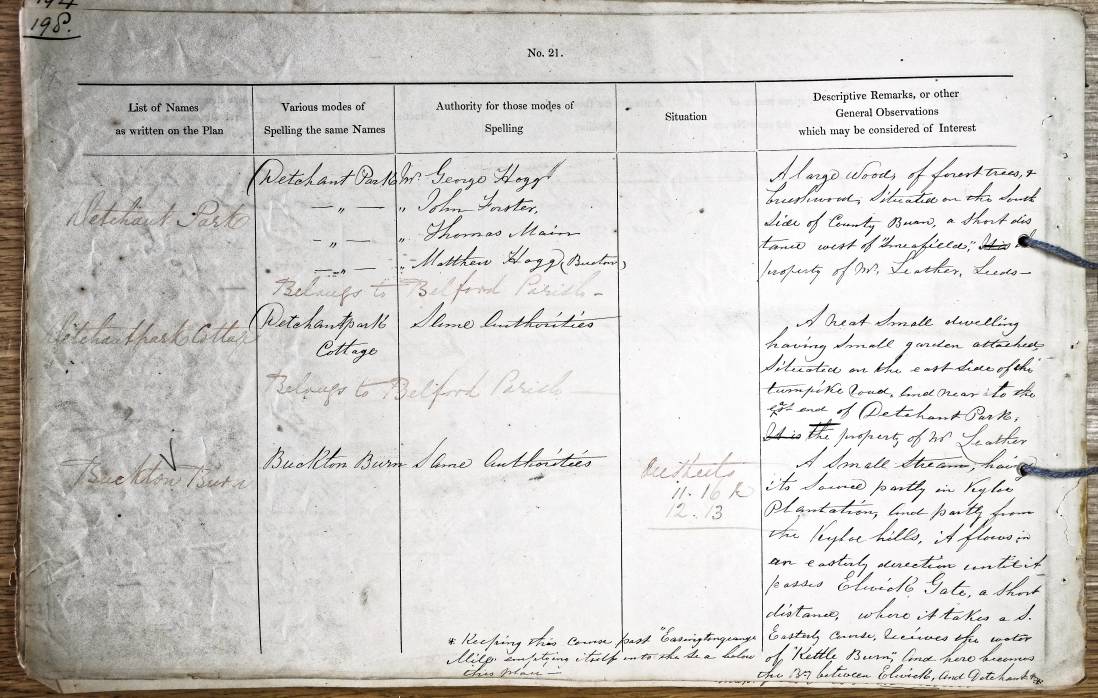 194
198.
No. 21.
List of Names
as written on the Plan
Various modes of
Spelling the same Names
Authority for those modes of
Spelling
Situation
Descriptive Remarks, or other
General Observations
which may be considered of Interest
Detchant Park
(Detchant Park
— " —
— " —
— " —
Mr. George Hogg
" John Forster,
" Thomas Main
" Matthew Hogg (Buckton)
Belongs to Belford Parish –
A large Woods of forest trees, &
brushwood, Situated on the South
Side of County Burn, a short dis
tance west of "Smeafield;" It is
property of Mr. Leather, Leeds –
Detchantpark Cottage
(Detchantpark
Cottage
Same Authorities
Belongs to Belford Parish –
A neat small dwelling
having small garden attached,
Situated on the east side of the
turnpike road, and near to the
end of Detchant Park,
It is the property of Mr Leather
Buckton Burn
Buckton Burn
Same Authorities
See Sheets
11. 16 &
12. 13
A Small Stream, having
its Source partly in Kyloe
Plantation, and partly from
the Kyloe hills, it flows in
an easterly direction until it
passes Elwick Gate, a short
distance, where it takes a S.
Easterly Course, receives the water
of "Kettle Burn," and here becomes
the By. between Elwick, and Detchant *
* Keeping this course past "Easingtongrange
Mill" emptying itself into the Sea below
this place –